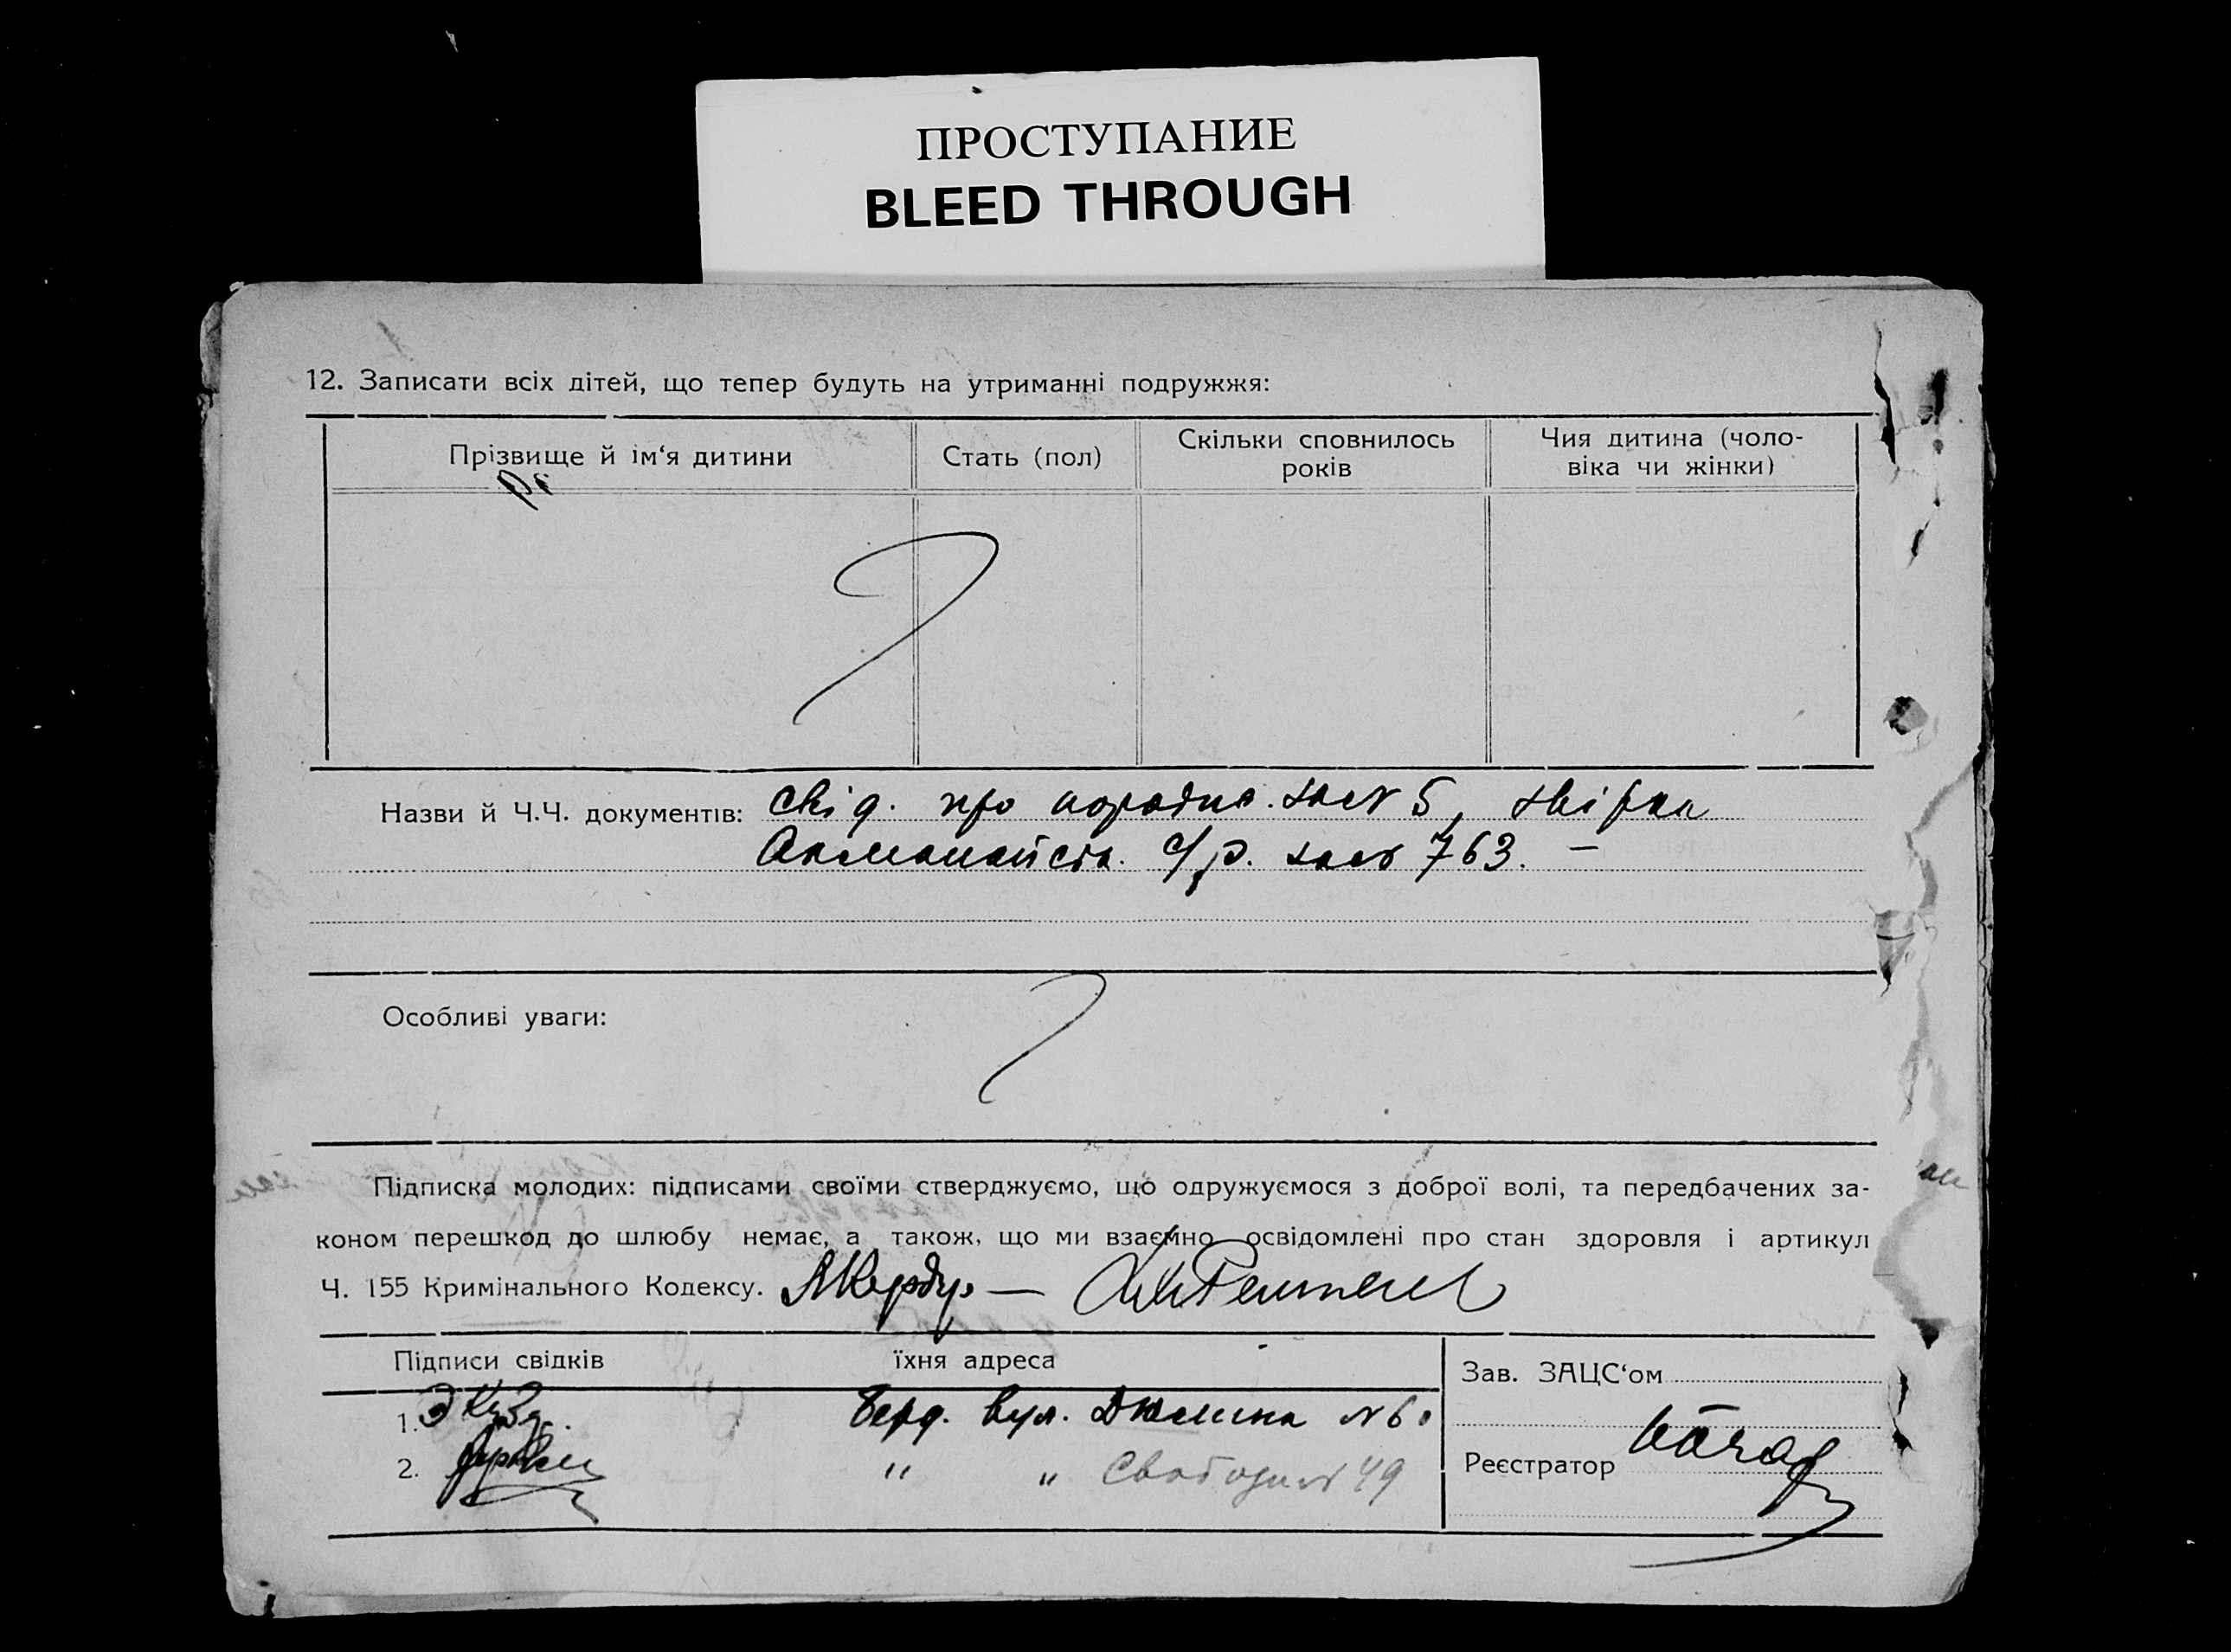 ПРОСТУПАНИЕ
BLEED THROUGH
12. Записати всіх дітей, що тепер будуть на утриманні подружжя:
Прізвище й ім‘я дитини
Стать (пол)
Скільки сповнилось
років
Чия дитина (чоло-
віка чи жінки)
Назви й Ч.Ч. документів: свід. про 5,
с/р. 763. —
Особливі уваги:
Підписка молодих: підписами своїми стверджуємо, що одружуємося з доброї волі, та передбачених за-
коном перешкод до шлюбу немає, а також, що ми взаємно освідомлені про стан здоровля і артикул
Ч. 155 Кримінального Кодексу.
Підписи свідків
їхня адреса
1. Берд. вул. Дюміна №
2. " " 49
Зав. ЗАЦС‘ом
Реєстратор